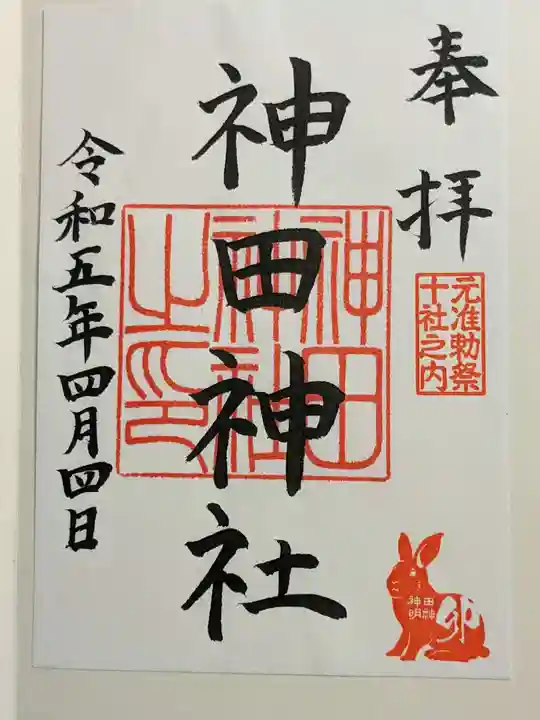 奉拝
元准勅祭
十社之内
神田神社
神田
神社
之印
令和五年四月四日
田神
神明
卯